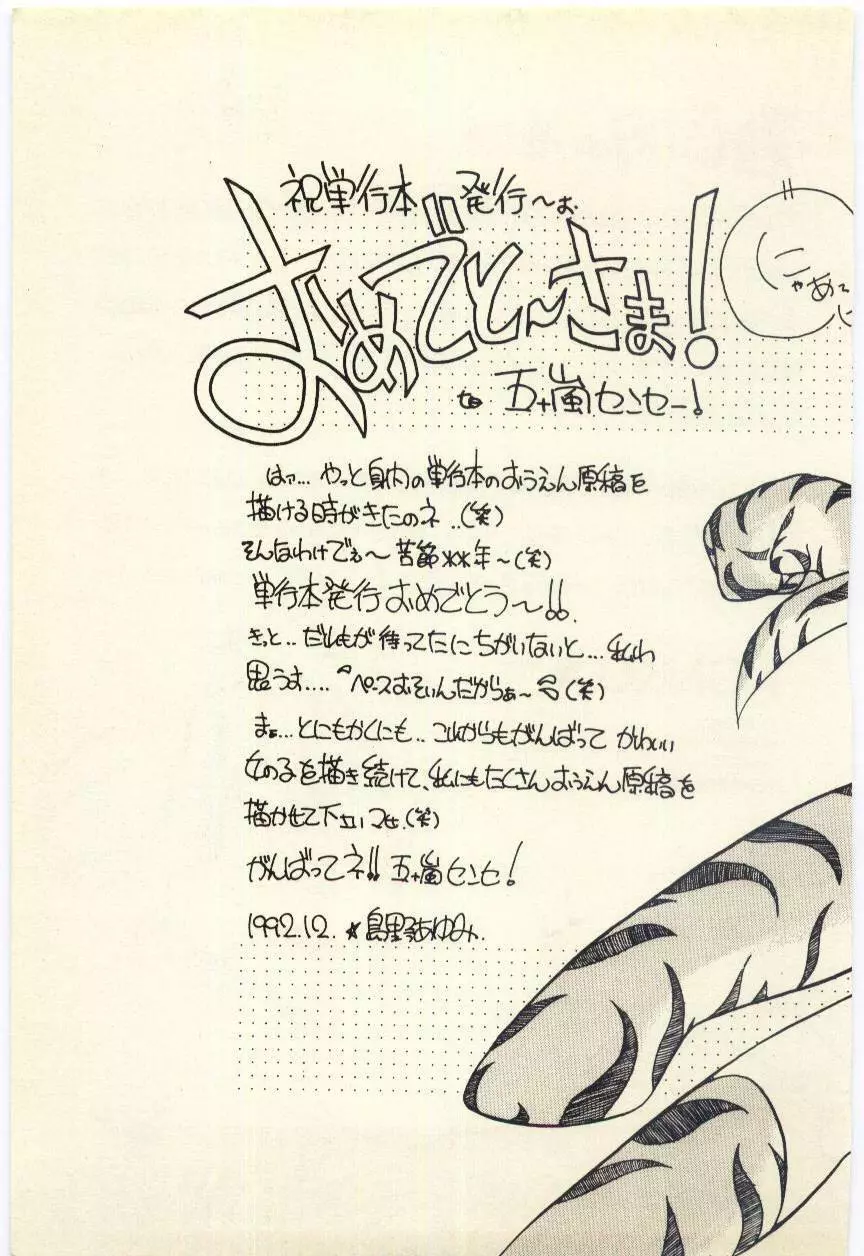 祝単行本発行〜お
おめでと〜さま!
to 五十嵐センセー!
にゃあ
はァ…やっと身内の単行本のおうえん原稿を
描ける時がきたのネ..(笑)
そんなわけでぇ〜苦節××年〜(笑)
単行本発行おめでとう〜!!
きっと..だれもが待ってたにちがいないと…私わ
思うす....ペースおそいんだからぁ〜(笑)
まぁ…とにもかくにも..これからもがんばって かわいい
女の子を描き続けて、私にもたくさんおうえん原稿を
描かせて下さいませ.(笑)
がんばってネ!! 五十嵐センセ!
1992.12. ☆島野あゆみ.